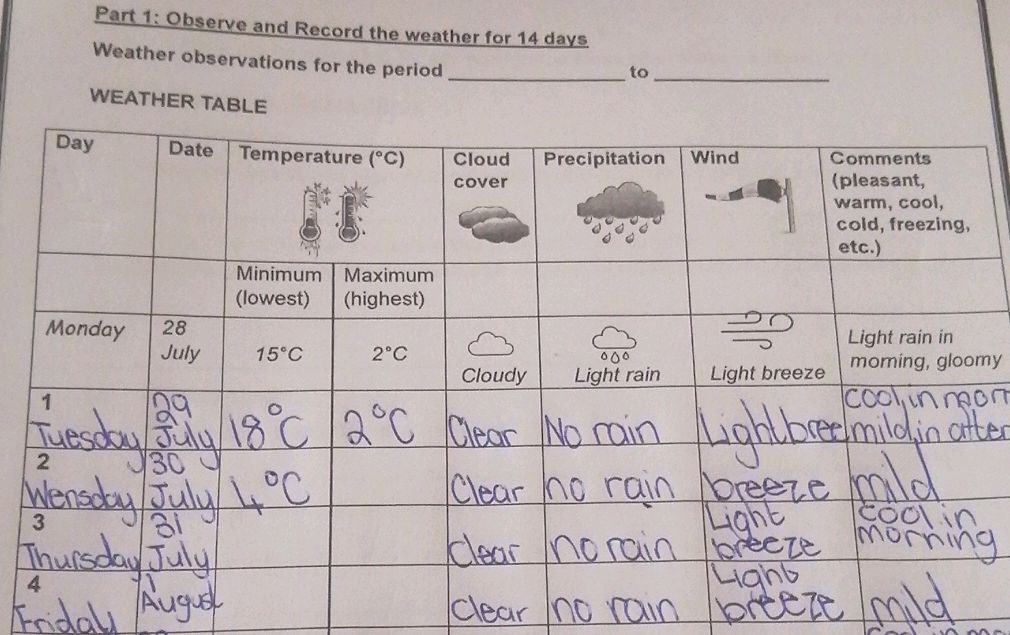 Part 1: Observe and Record the weather for 14 days
Weather observations for the period ____________ to ____________
WEATHER TABLE
Day Date Temperature (°C) Cloud cover Precipitation Wind Comments (pleasant, warm, cool, cold, freezing, etc.)
Minimum (lowest) Maximum (highest)
Monday 28 July 15°C 2°C Cloudy Light rain Light breeze Light rain in morning, gloomy
1 Tuesday 29 July 18°C 2°C Clear No rain Light bree cool, in morn mild, in after
2 Wensday 30 July 4°C Clear no rain breeze mild
3 Thursday 31 July clear no rain Light breeze cool in morning
4 Friday 1 August clear no rain Light breeze mild